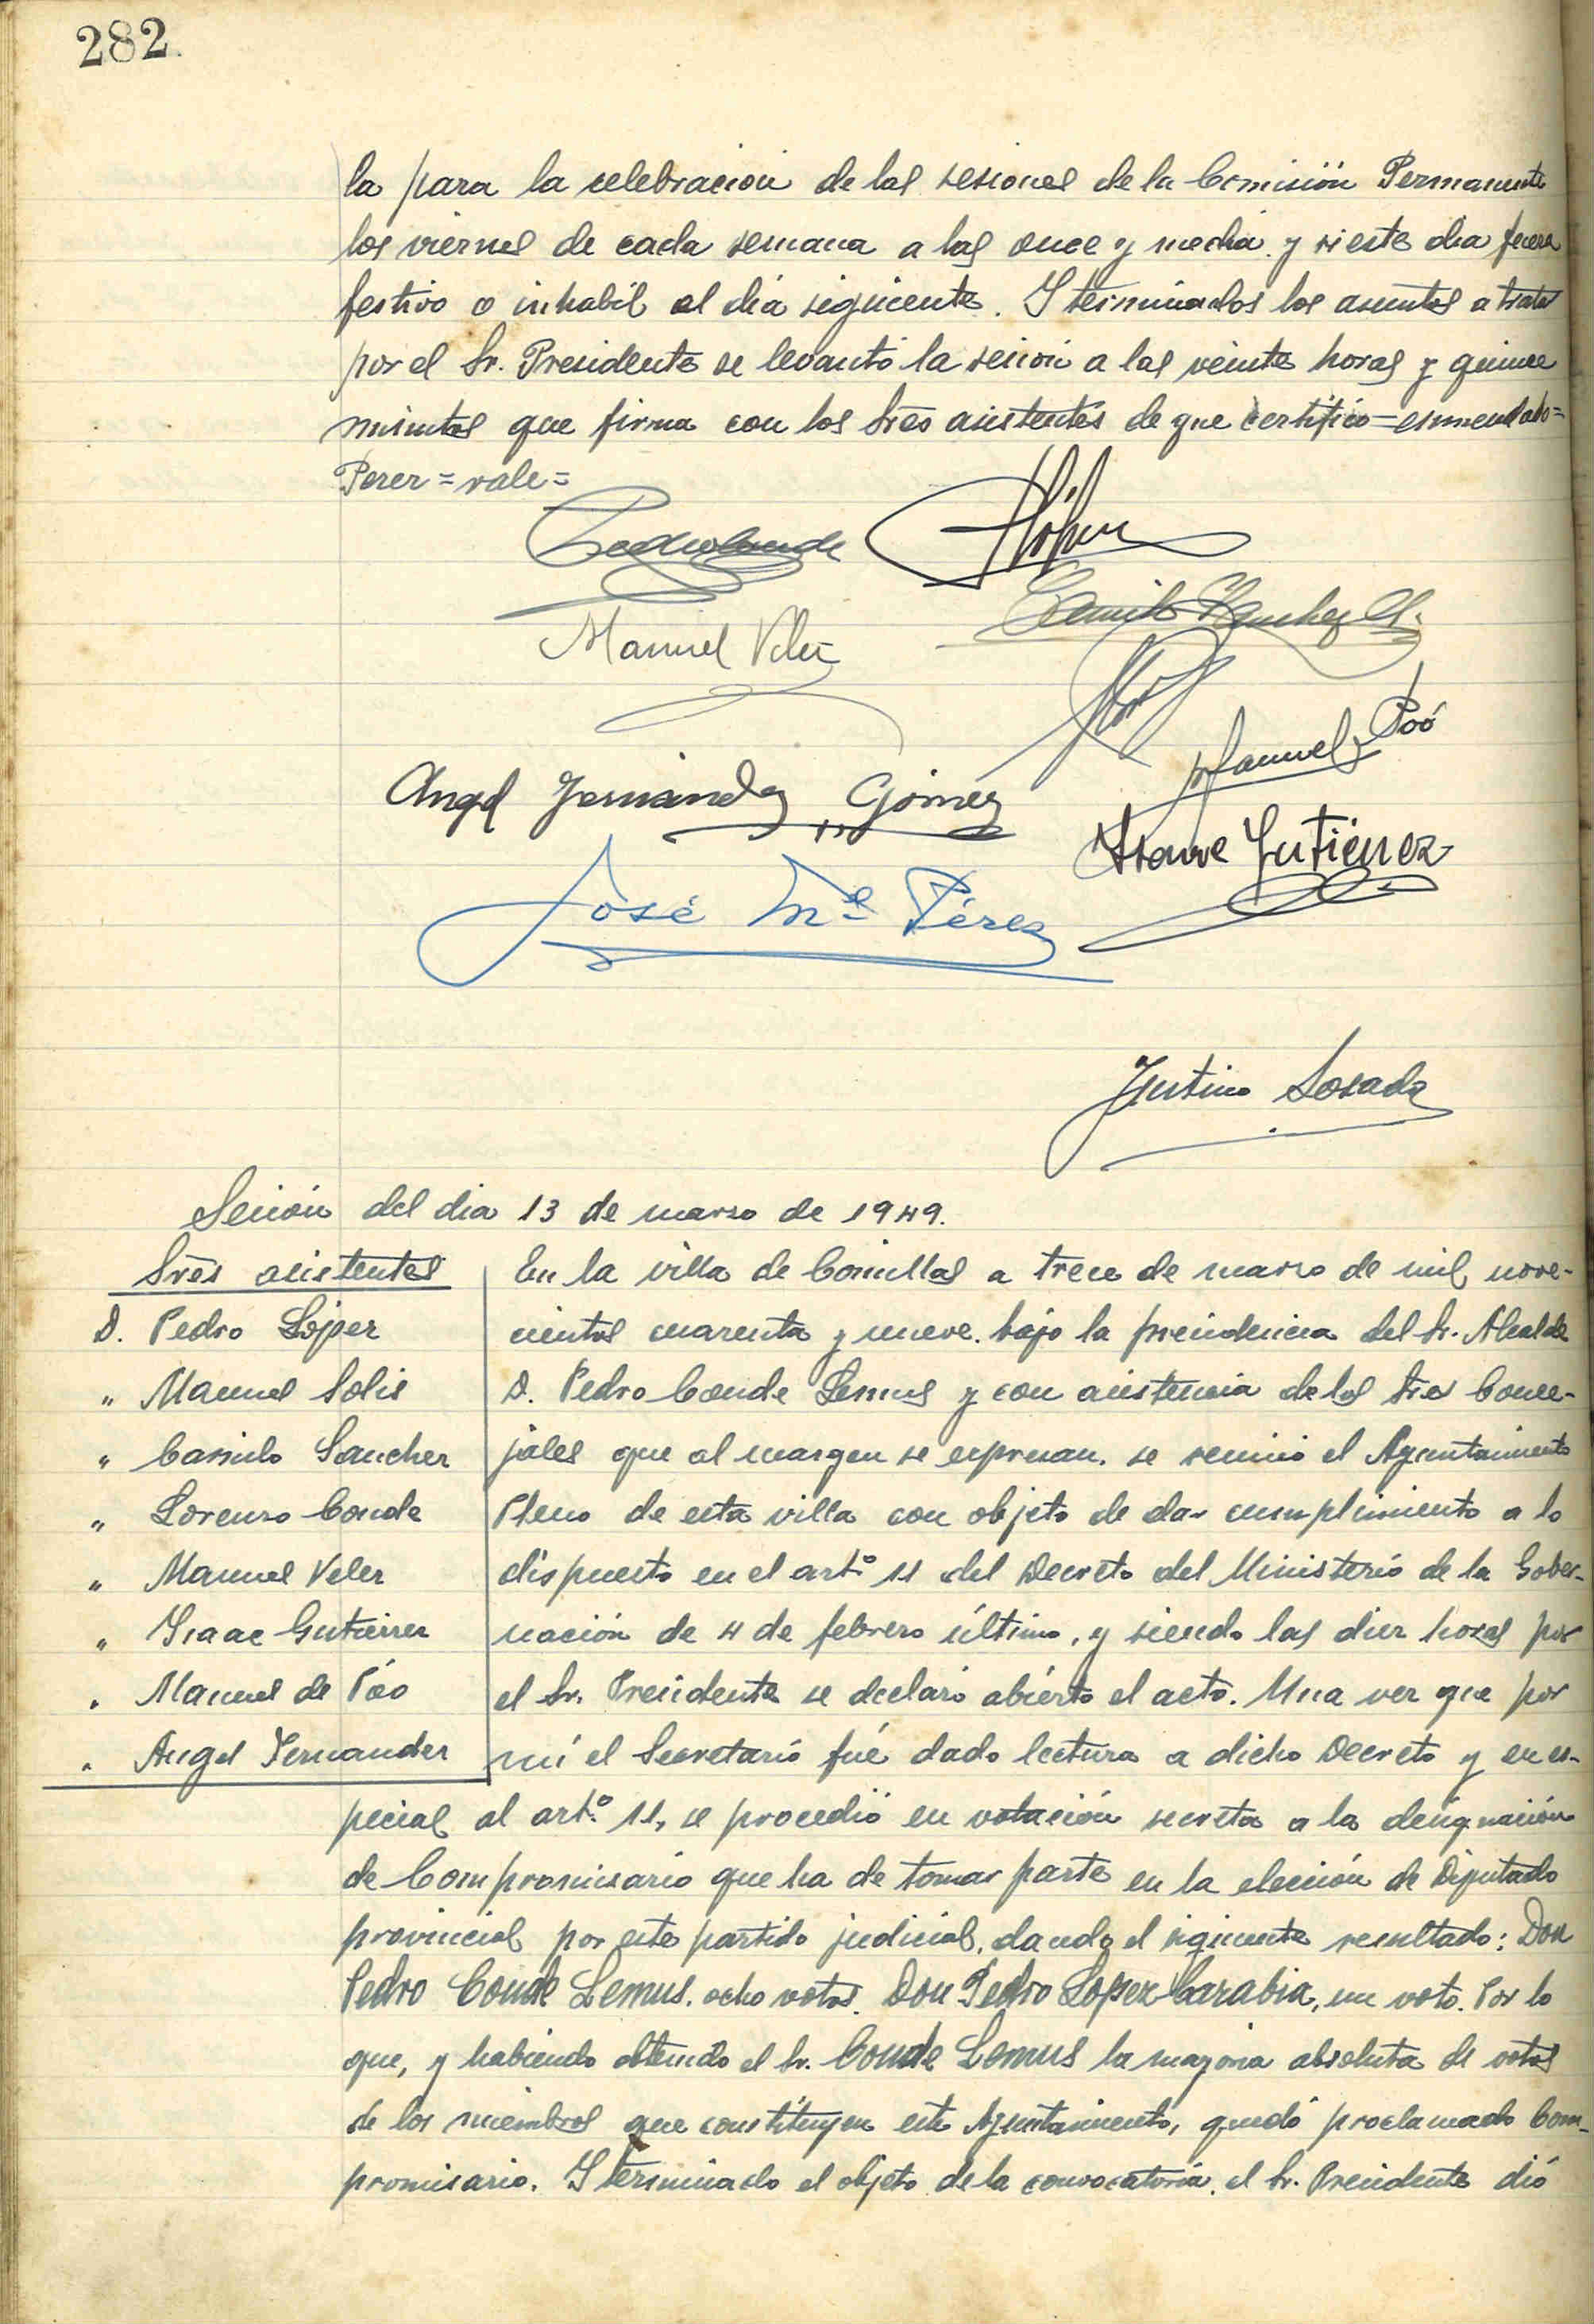 282.
la para la celebración de las sesiones de la Comisión Permanente
los viernes de cada semana a las once y media y si este dia fuera
festivo o inhabil al día siguiente. Y terminados los asuntos a tratar
por el Sr. Presidente se levantó la sesión a las veinte horas y quince
minutos que firma con los Sres asistentes de que certifico=enmendado=
Perez=vale=
Pedro Conde
PLópez
Manuel Velez
Camilo Sanchez
Manuel Poó
Angel Fernández Gómez
Isaac Gutiérrez
José Mª Pérez
Justino Losada
Sesión del dia 13 de marzo de 1949.
Sres asistentes
D. Pedro López
" Manuel Solis
" Camilo Sanchez
" Lorenzo Conde
" Manuel Velez
" Isaac Gutierrez
" Manuel de Póo
" Angel Fernandez
En la villa de Comillas a trece de marzo de mil nove-
cientos cuarenta y nueve. bajo la presidencia del Sr. Alcalde
D. Pedro Conde Lemus y con asistencia de los Sres Conce-
jales que al margen se expresan. se reunió el Ayuntamiento
Pleno de esta villa con objeto de dar cumplimiento a lo
dispuesto en el artº 11 del Decreto del Ministerio de la Gober-
nación de 4 de febrero último, y siendo las diez horas por
el Sr. Presidente se declaró abierto el acto. Una vez que por
mí el Secretario fué dado lectura a dicho Decreto y en es-
pecial al artº 11, se procedió en votación secreta a la designación
de Compromisario que ha de tomar parte en la elección de Diputado
provincial por este partido judicial, dando el siguiente resultado: Don
Pedro Conde Lemus. ocho votos. Don Pedro Lopez Carabia, un voto. Por lo
que, y habiendo obtenido el Sr. Conde Lemus la mayoria absoluta de votos
de los miembros que constituyen este Ayuntamiento, quedó proclamado Com-
promisario. Y terminado el objeto de la convocatoria. el Sr. Presidente dió